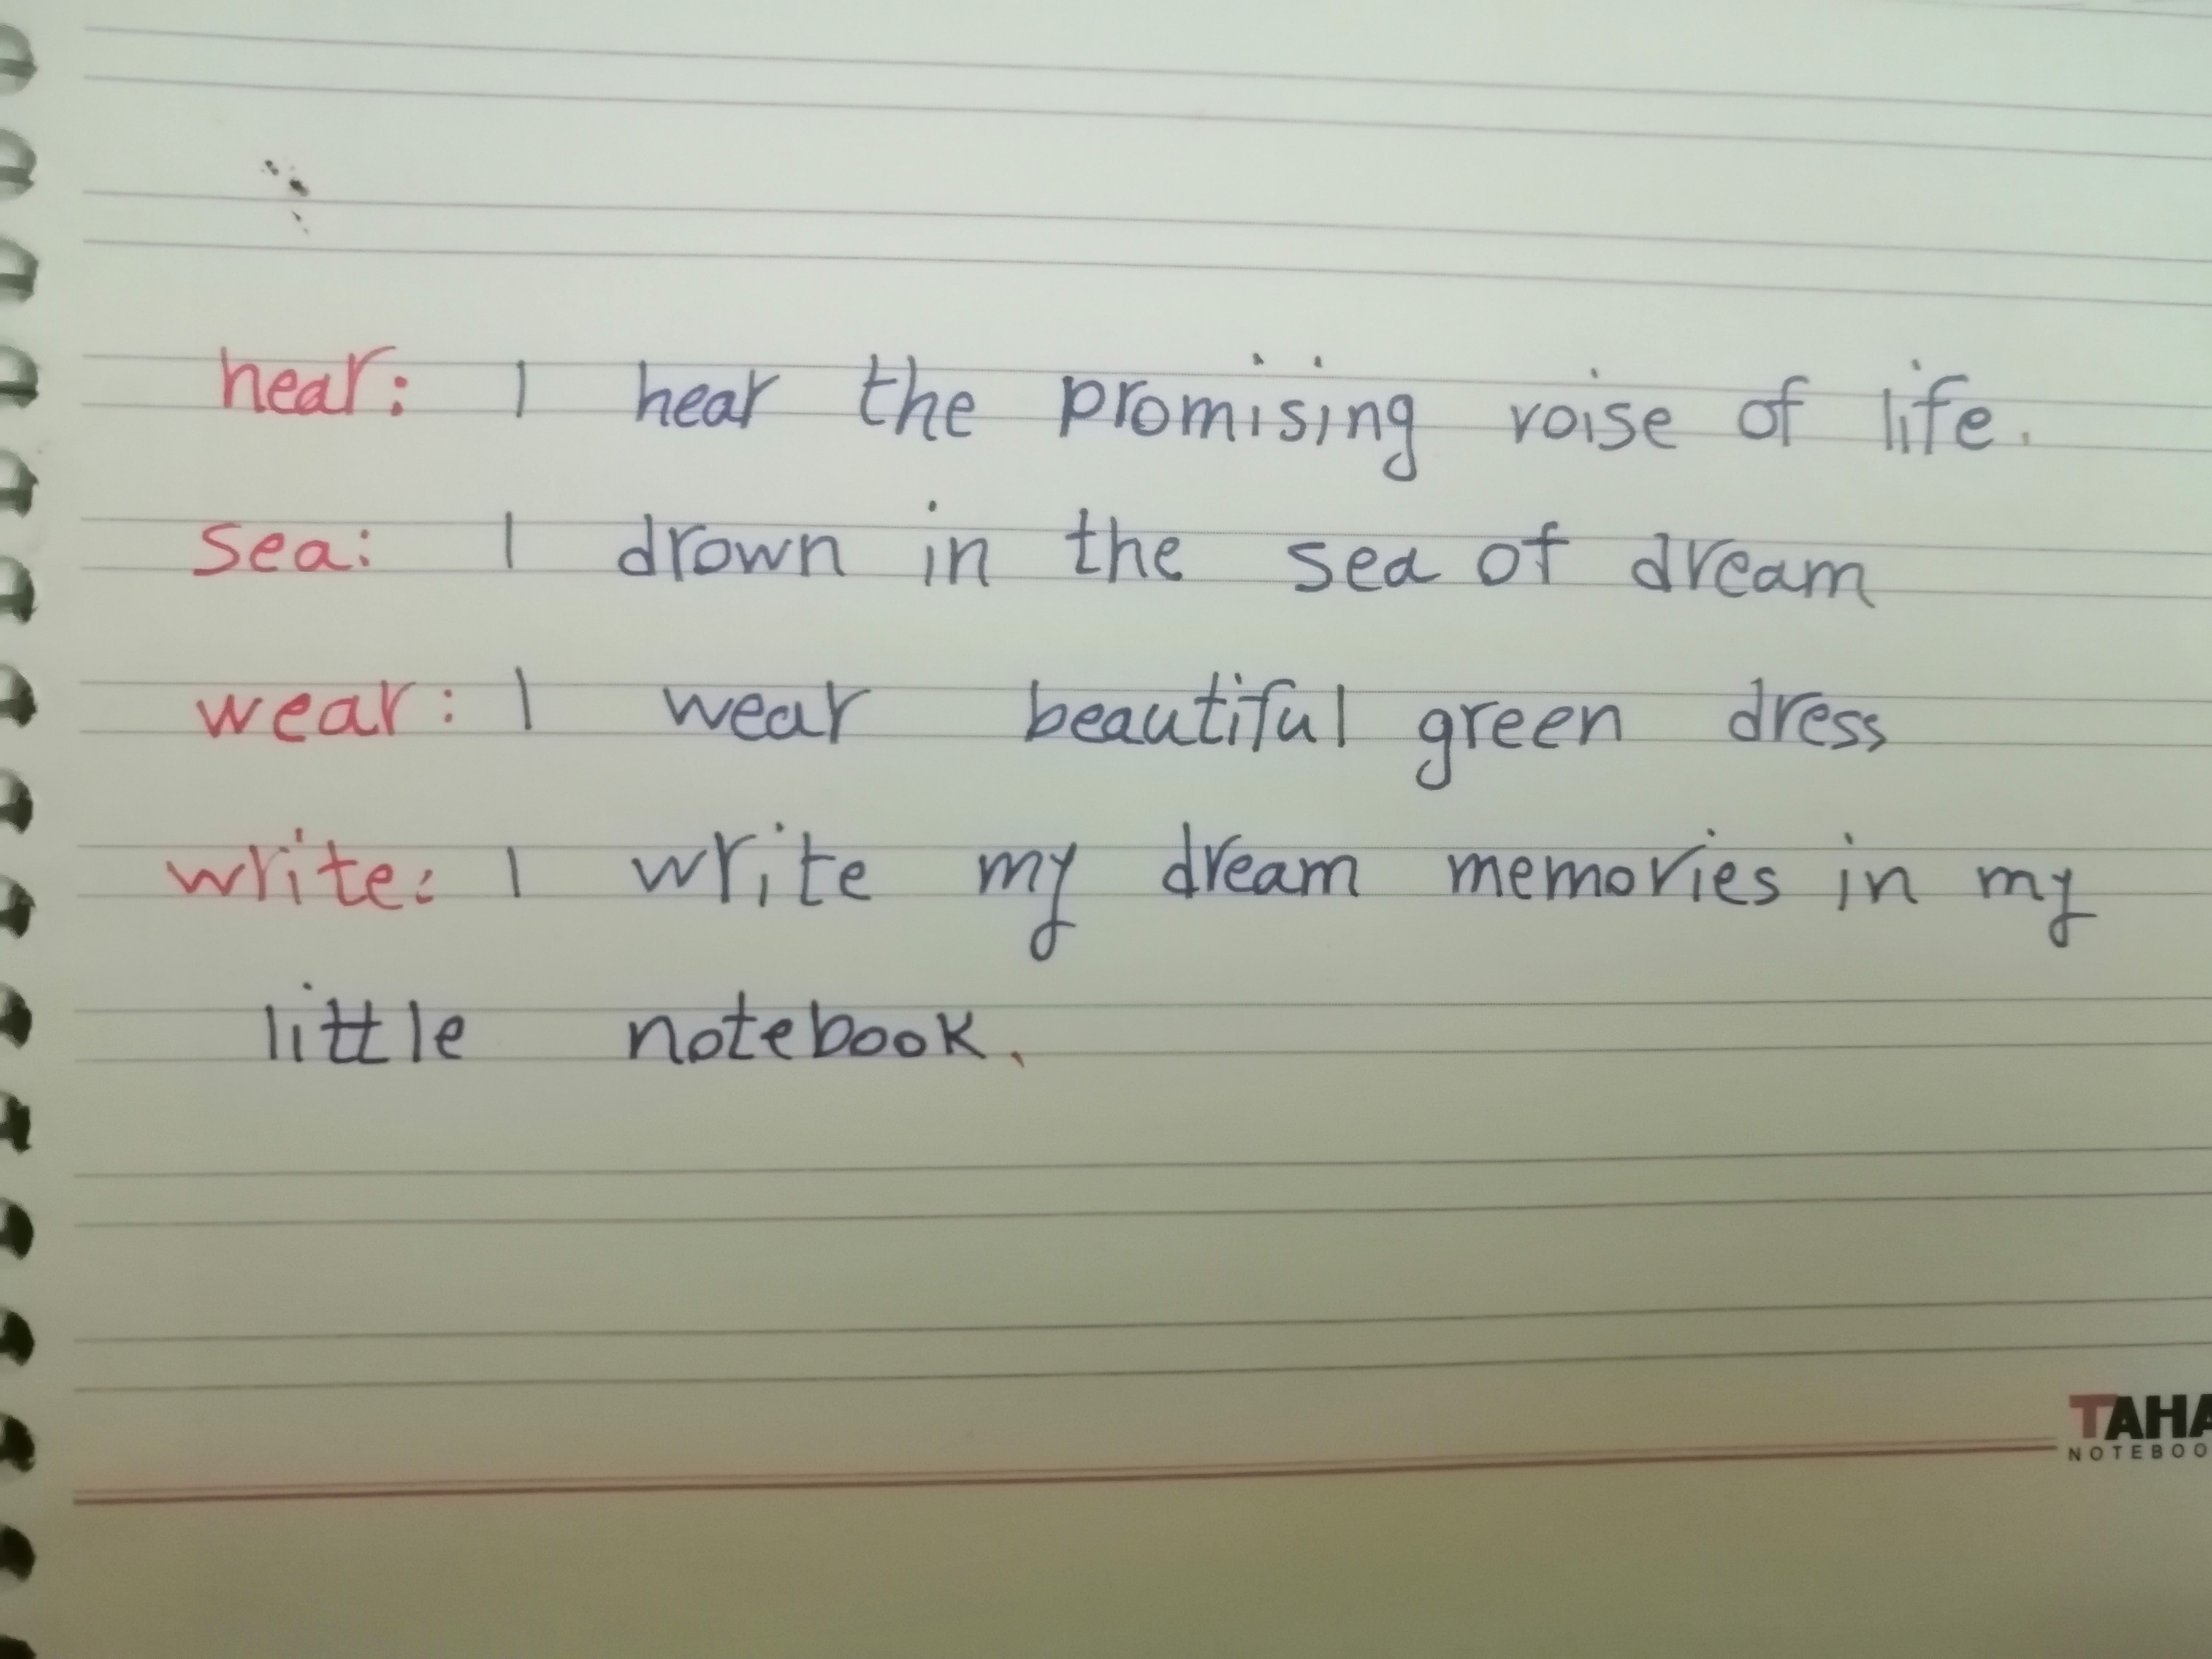 hear: I hear the promising voise of life.
sea: I drown in the sea of dream
wear: I wear beautiful green dress
write: I write my dream memories in my
little notebook.
TAHA
NOTEBOO